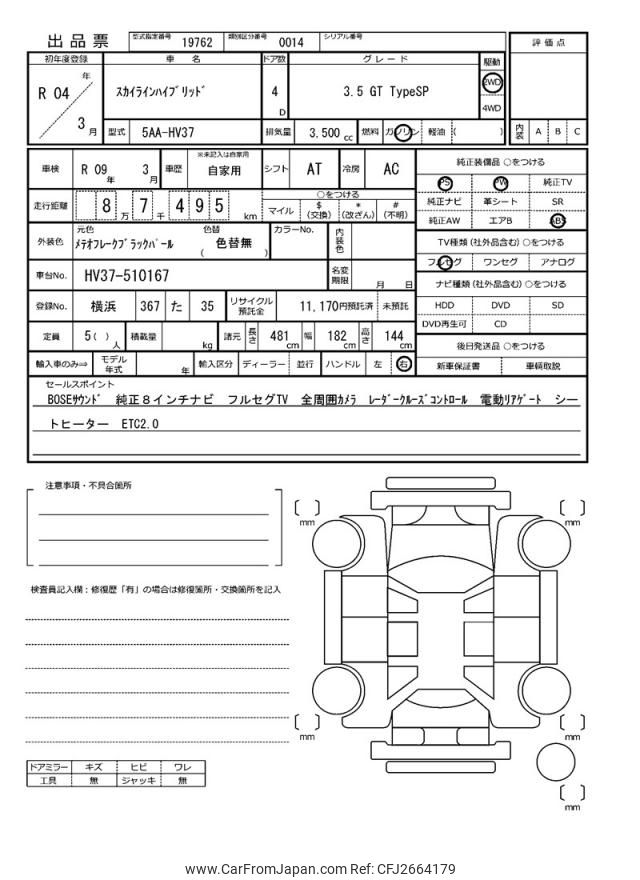 出品票 型式指定番号 19762 類別区分番号 0014 シリアル番号
評価点
初年度登録 車名 ドア数 グレード 駆動
R 04 年 3 月 スカイラインハイブリッド 4 D 3.5 GT TypeSP 2WD
4WD
型式 5AA-HV37 排気量 3,500 cc 燃料 ガソリン 軽油 ( )
内装 A B C
車検 R 09 年 3 月 車歴 ※未記入は自家用 自家用 シフト AT 冷房 AC
純正装備品 ○をつける
PS PW 純正TV
純正ナビ 革シート SR
純正AW エアB ABS
走行距離 8 万 7 千 4 9 5 km ○をつける
マイル $ (交換) * (改ざん) # (不明)
外装色 元色 メテオフレークブラックパール 色替 ( 色替無 ) カラーNo. 内装色
TV種類 (社外品含む) ○をつける
フルセグ ワンセグ アナログ
車台No. HV37-510167 名変期限 月 日
ナビ種類 (社外品含む) ○をつける
HDD DVD SD
DVD再生可 CD
登録No. 横浜 367 た 35 リサイクル預託金 11,170円預託済 未預託
定員 5( ) 人 積載量 kg 諸元 長さ 481 cm 幅 182 cm 高さ 144 cm
後日発送品 ○をつける
新車保証書 車輌取説
輸入車のみ⇒ モデル年式 年 輸入区分 ディーラー 並行 ハンドル 左 右
セールスポイント
BOSEサウンド 純正8インチナビ フルセグTV 全周囲カメラ レーダークルーズコントロール 電動リアゲート シー
トヒーター ETC2.0
注意事項・不具合箇所
mm
mm
検査員記入欄:修復歴「有」の場合は修復箇所・交換箇所を記入
mm
mm
ドアミラー キズ ヒビ ワレ
工具 無 ジャッキ 無
mm
www.CarFromJapan.com Ref: CFJ2664179